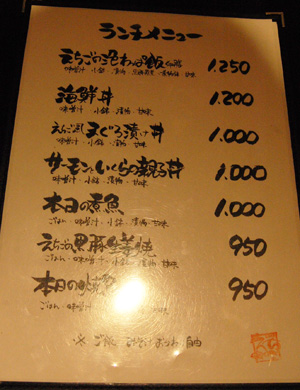 ランチメニュー
えらごの 1,250
味噌汁・小鉢・漬物・甘味
海鮮丼 1,200
味噌汁・小鉢・漬物・甘味
まぐろ漬け丼 1,000
味噌汁・小鉢・漬物・甘味
サーモンといくらの親子丼 1,000
味噌汁・小鉢・漬物・甘味
本日の煮魚 1,000
ごはん・味噌汁・小鉢・漬物・甘味
黒豚生姜焼 950
ごはん・味噌汁・小鉢・漬物・甘味
本日の 950
ごはん・味噌汁
※ご飯 おかわり自由